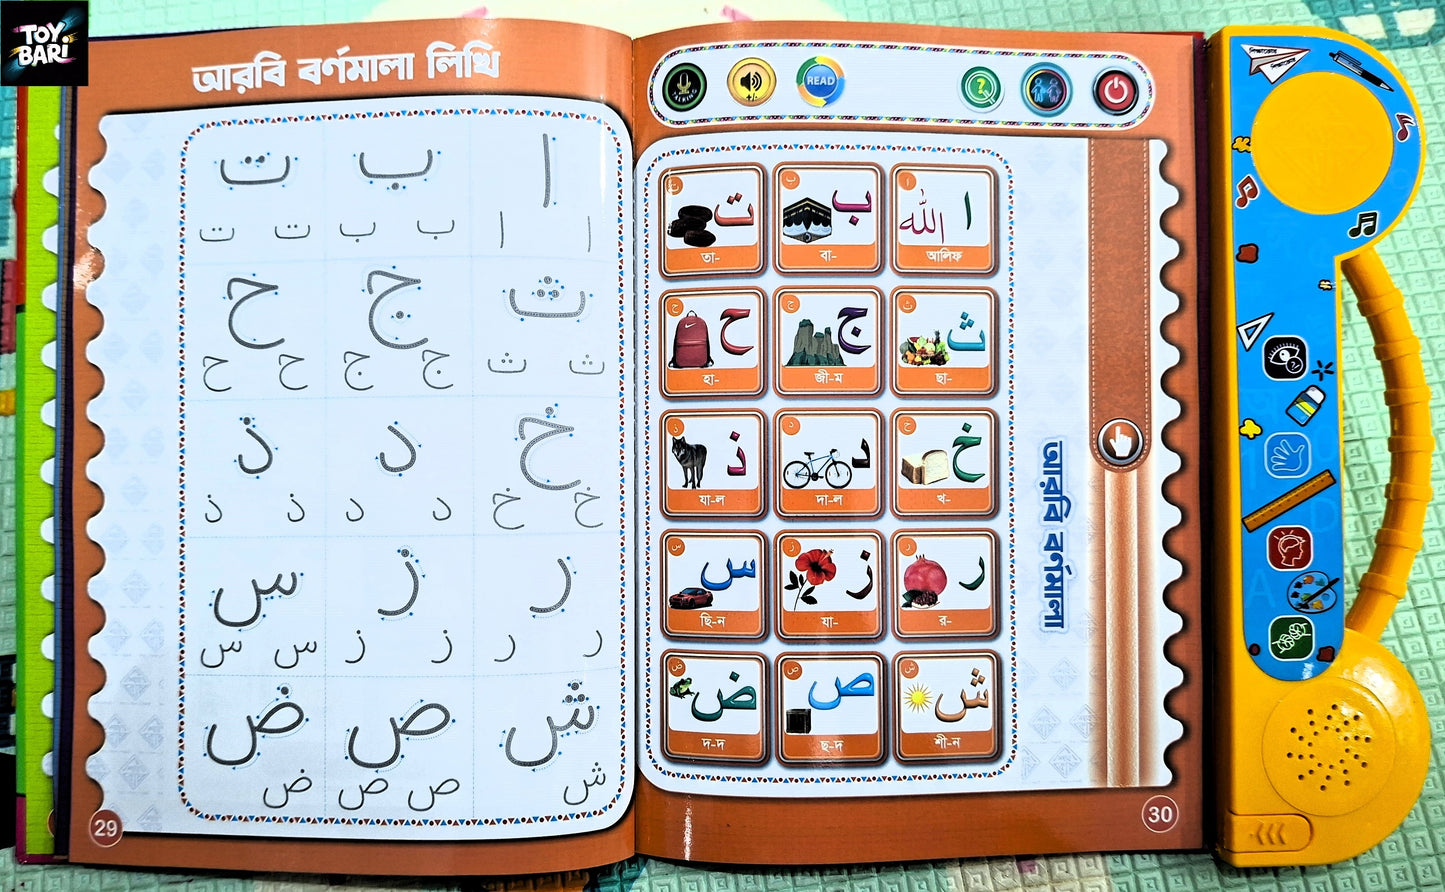 TOY
BARI
আরবি বর্ণমালা লিখি
ا ب ت
ا ا ب ب ت ت
ث ج ح
ث ث ج ج ح ح
خ د ذ
خ خ د د ذ ذ
ر ز س
ر ر ز ز س س
ش ص ض
ش ص ص ض
29
TALKING
+/-
READ
?
ا الله
আলিফ
ب
বা-
ت
তা-
ث
ছা-
ج
জী-ম
ح
হা-
خ
খ-
د
দা-ল
ذ
যা-ল
ر
র-
ز
যা-
س
ছি-ন
ش
শী-ন
ص
ছ-দ
ض
দ-দ
আরবি বর্ণমালা
30